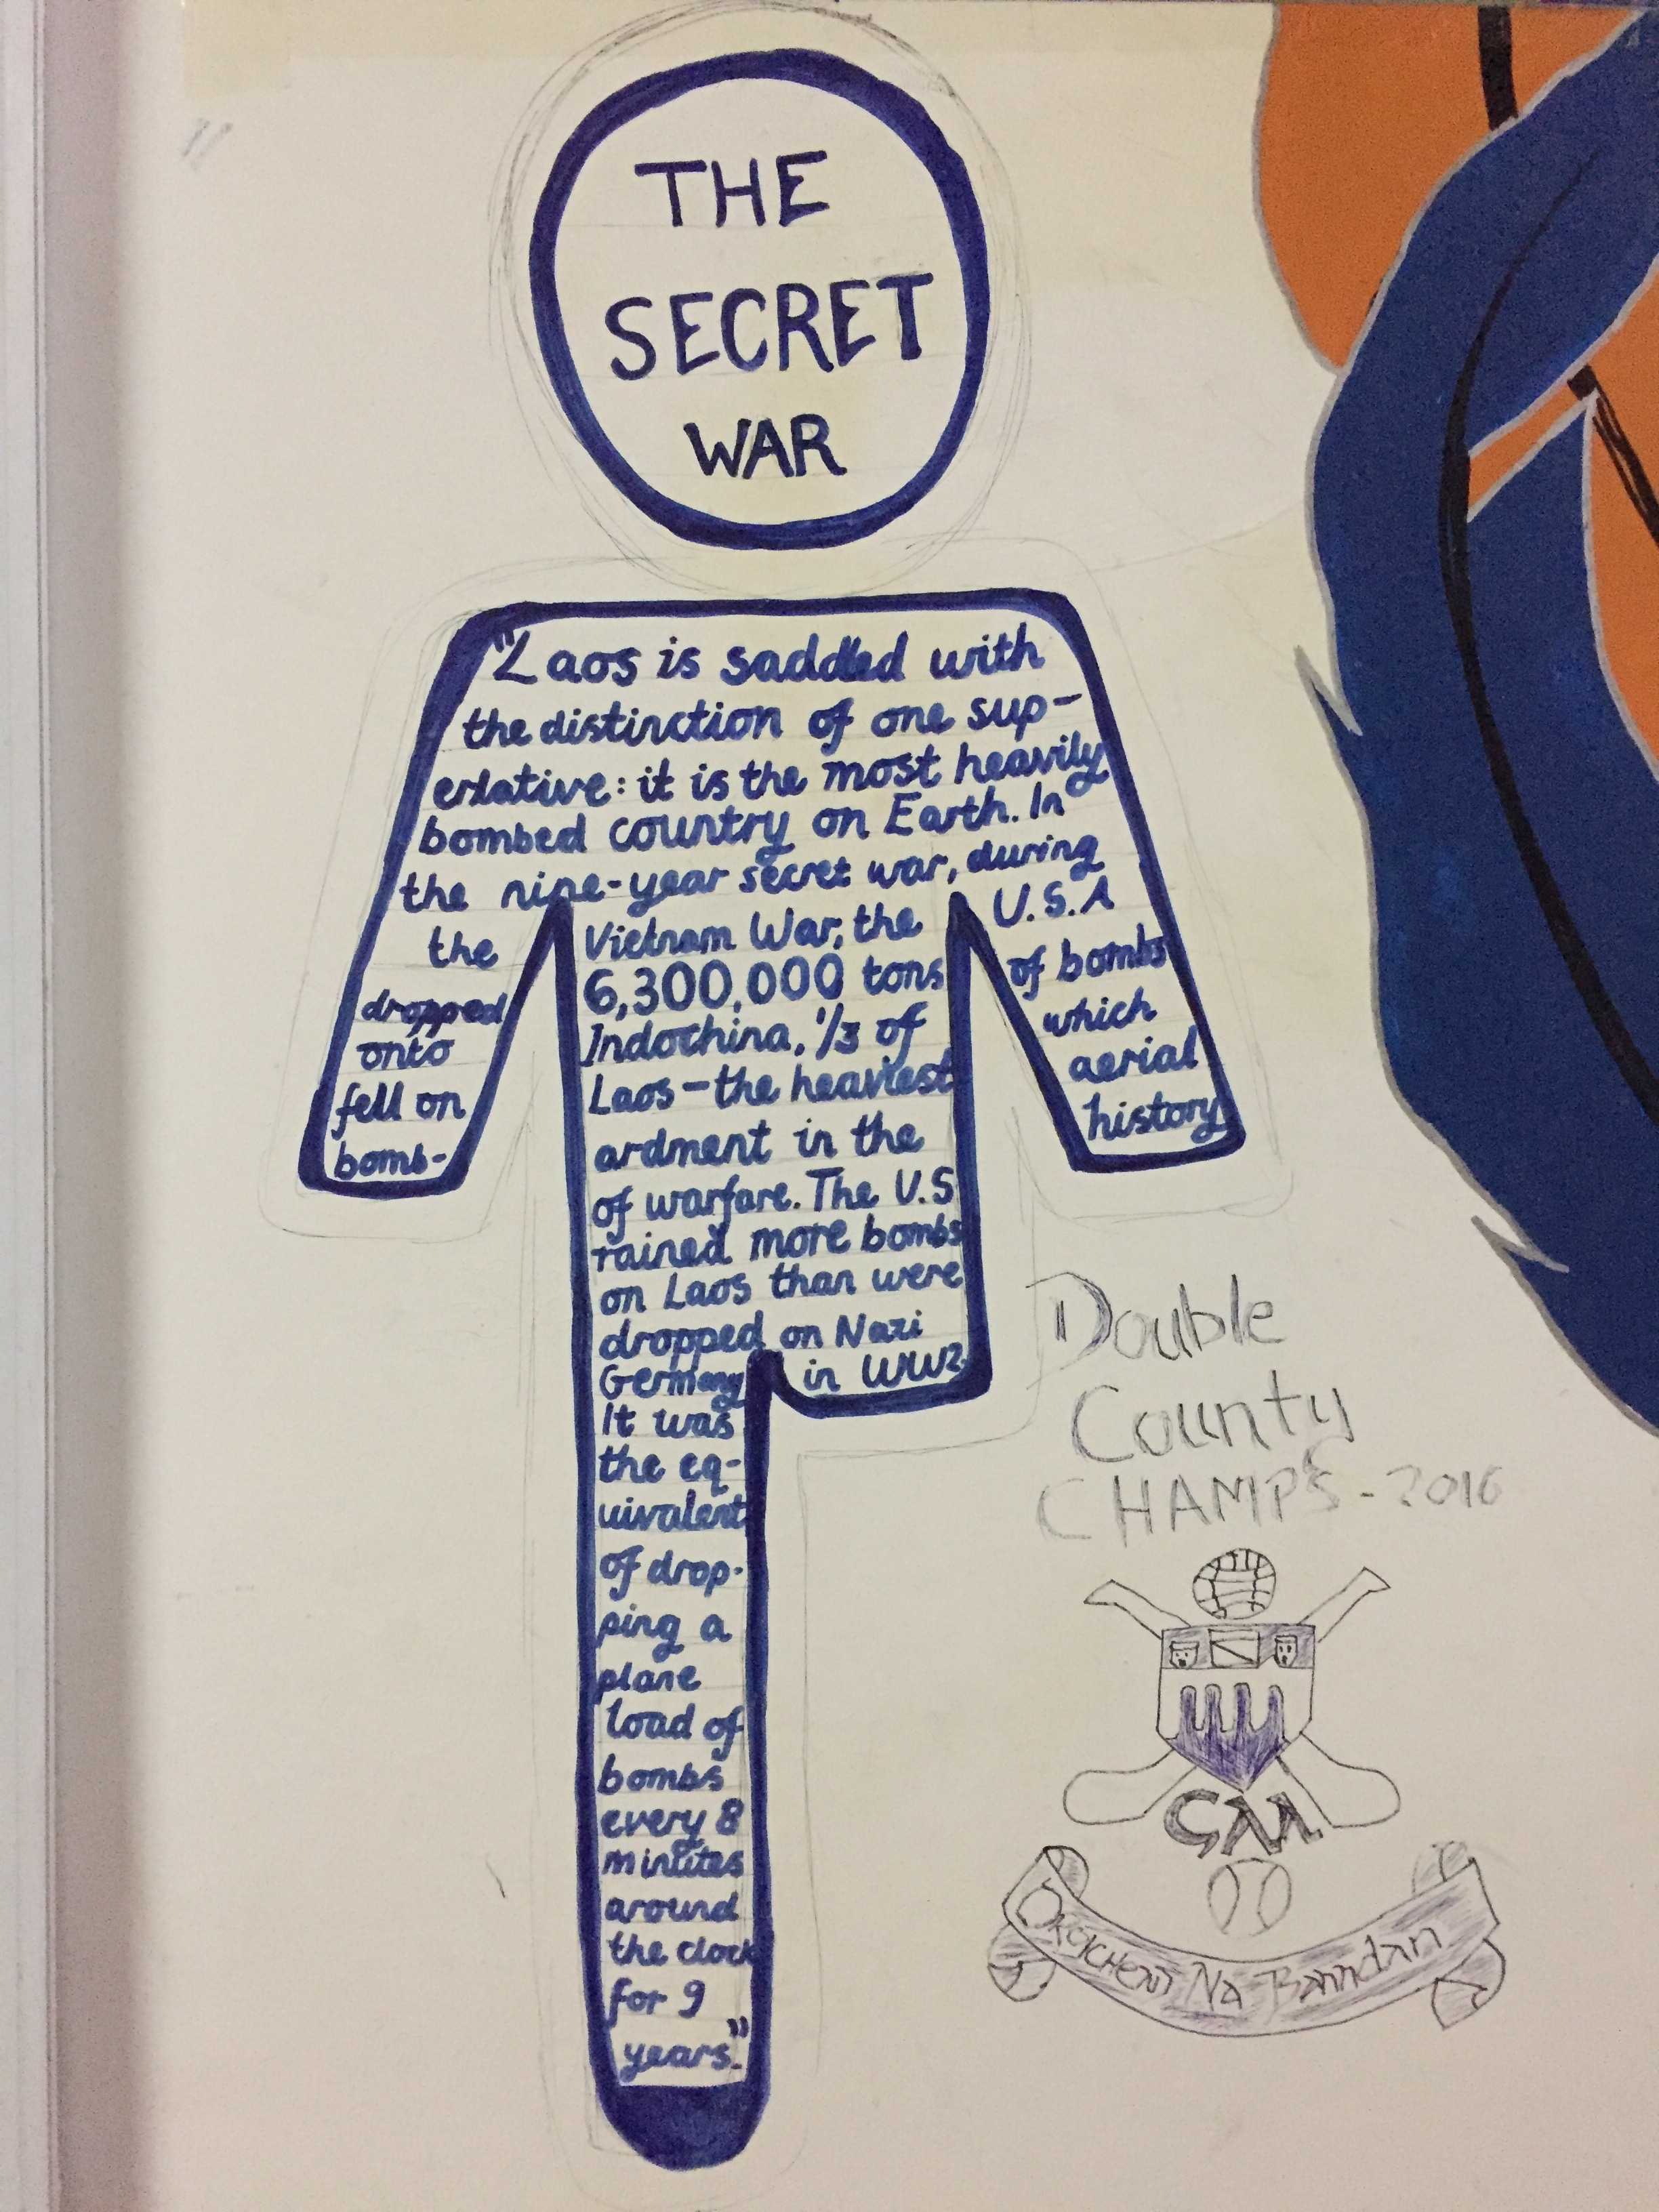 THE
SECRET
WAR
"Laos is saddled with
the distinction of one sup-
erlative: it is the most heavily
bombed country on Earth. In
the nine-year secret war, during
the Vietnam War, the U.S.A
dropped 6,300,000 tons of bombs
onto Indochina, 1/3 of which
fell on Laos - the heaviest aerial
bomb- ardment in the history
of warfare. The U.S
rained more bombs
on Laos than were
dropped on Nazi
Germany in WW2
It was
the eq-
uivalent
of drop-
ping a
plane
load of
bombs
every 8
minutes
around
the clock
for 9
years."
Double
County
CHAMPS - 2016
GAA
Na Banndan